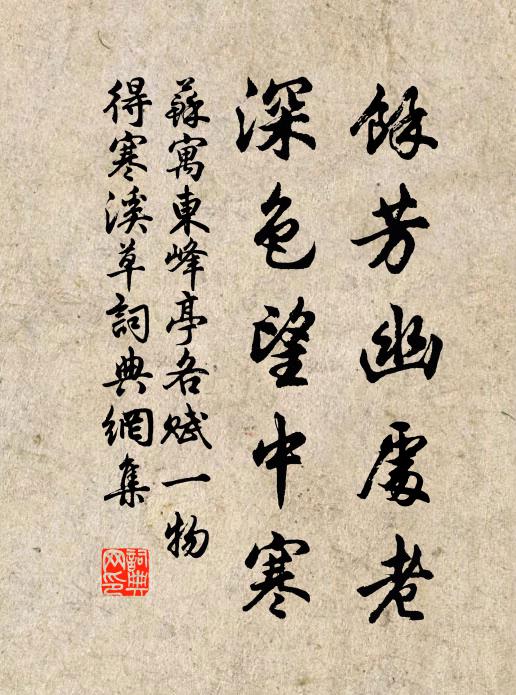 餘芳幽處老
深色望中寒
蘇寓東峰亭各賦一物
得寒溪草詞典網集
詞典網印